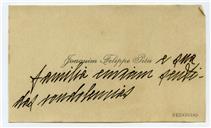 Joaquim Filippe Piteira e sua
familia enviam senti-
das condolencias
REDONDO